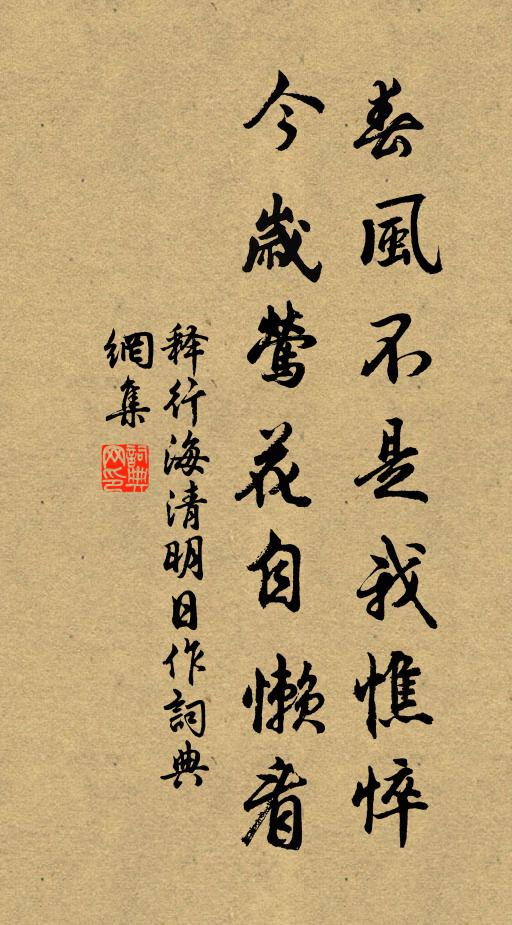 春風不是我憔悴
今歲鶯花自懶看
释行海清明日作詞典
網集
詞典
网印